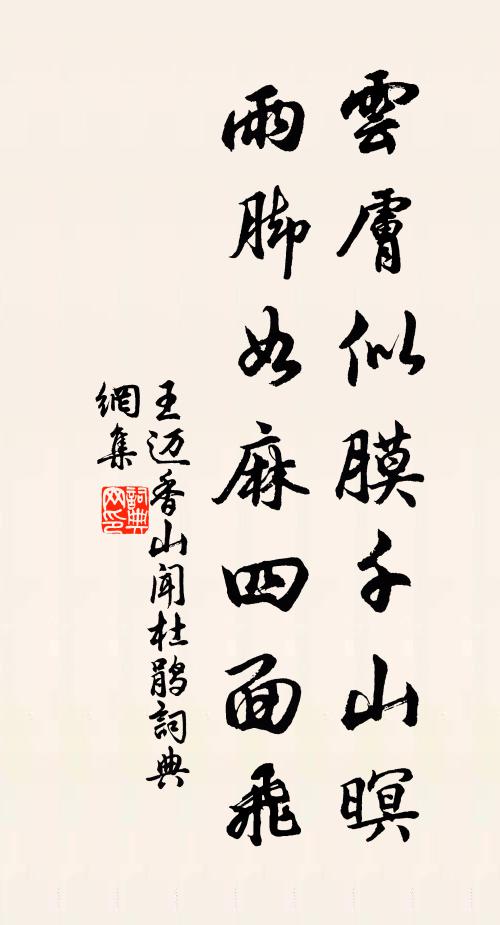 雲膚似膜千山暝
雨脚如麻四面飛
王迈香山闻杜鹃詞典
網集
詞典
网印